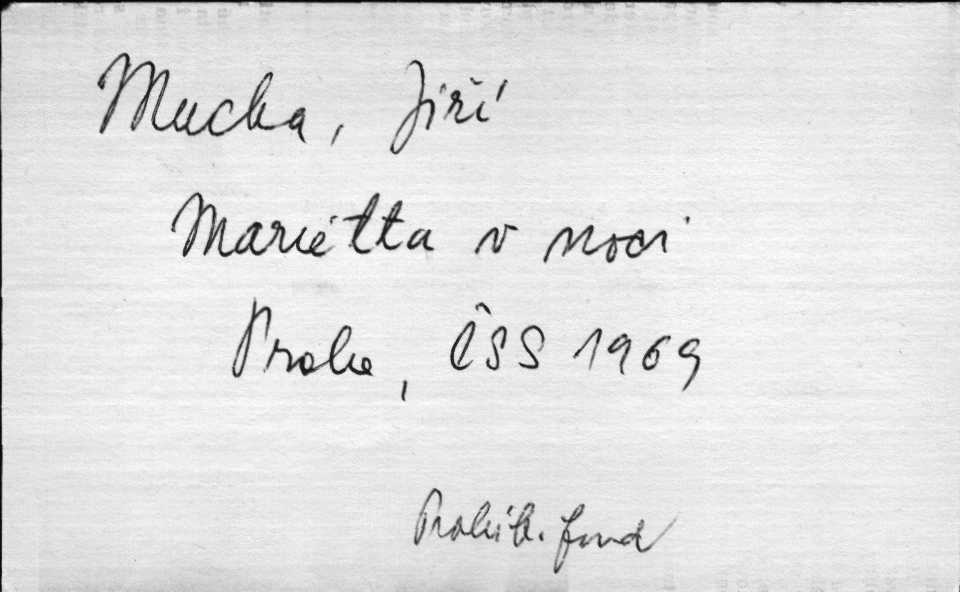 Mucha, Jiří
Marietta v noci
Praha, ČSS 1969
Prohib. fond